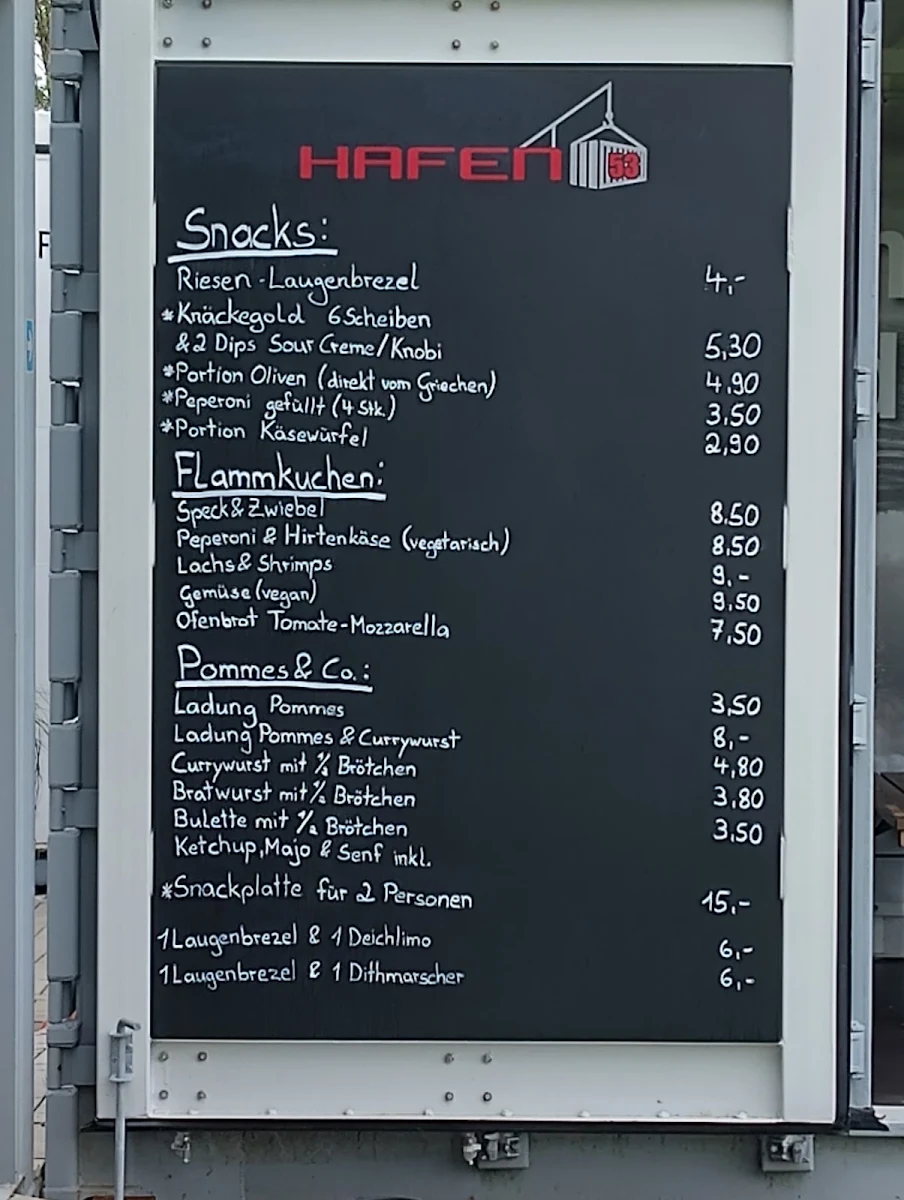 HAFEN 53
Snacks:
Riesen-Laugenbrezel 4,-
*Knäckegold 6 Scheiben
& 2 Dips Sour Creme/Knobi 5,30
*Portion Oliven (direkt vom Griechen) 4,90
*Peperoni gefüllt (4 Stk.) 3,50
*Portion Käsewürfel 2,90
Flammkuchen:
Speck & Zwiebel 8.50
Peperoni & Hirtenkäse (vegetarisch) 8,50
Lachs & Shrimps 9.-
Gemüse (vegan) 9,50
Ofenbrot Tomate-Mozzarella 7,50
Pommes & Co.:
Ladung Pommes 3,50
Ladung Pommes & Currywurst 8,-
Currywurst mit ½ Brötchen 4,80
Bratwurst mit ½ Brötchen 3,80
Bulette mit ½ Brötchen 3,50
Ketchup, Majo & Senf inkl.
*Snackplatte für 2 Personen 15,-
1 Laugenbrezel & 1 Deichlimo 6,-
1 Laugenbrezel & 1 Dithmarscher 6,-